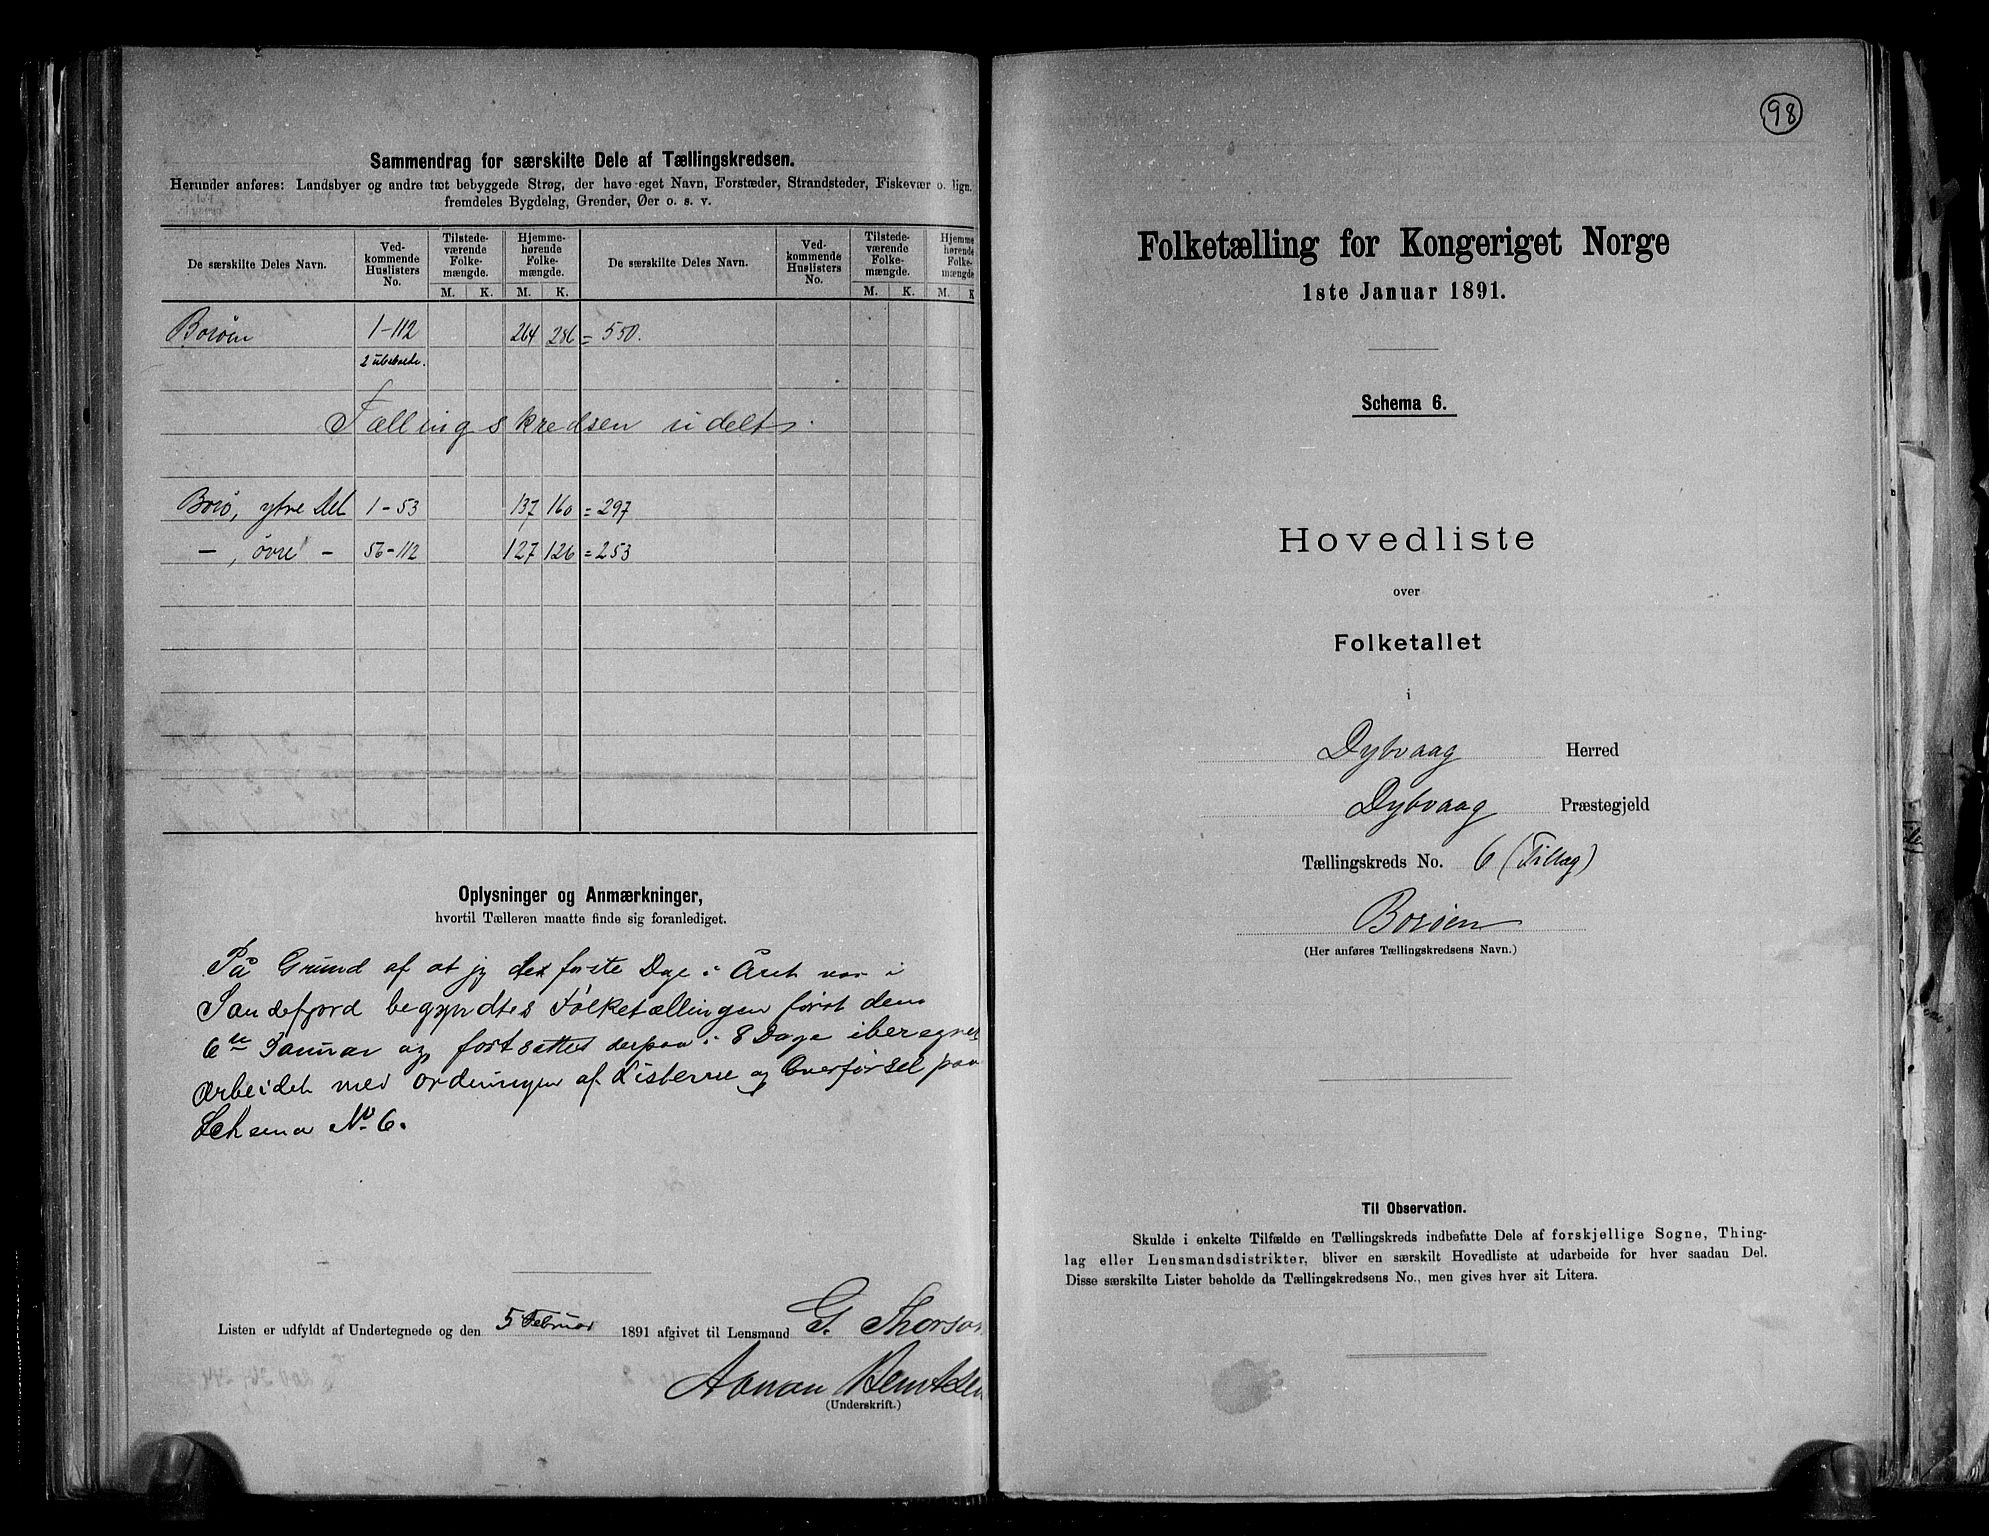 Sammendrag for særskilte Dele af Tællingskredsen.
Herunder anføres: Landsbyer og andre tæt bebyggede Strøg, der have eget Navn, Forstæder, Strandsteder, Fiskevær o. lign.
fremdeles Bygdelag, Grender, Øer o. s. v.
De særskilte Deles Navn. Ved-kommende Huslisters No. Tilstede-værende Folke-mængde. Hjemme-hørende Folke-mængde. De særskilte Deles Navn. Ved-kommende Huslisters No. Tilstede-værende Folke-mængde. Hjemme hørende Folke-mængde
M. K. M. K. M. K. M. K
Borøen 1-112 264 286 = 550.
2 ubeboede.
Tællingskredsen udelt.
Borø, ytre Del 1-53 137 160 = 297
- , øvre - 56-112 127 126 = 253
Oplysninger og Anmærkninger,
hvortil Tælleren maatte finde sig foranlediget.
På Grund af at jg de første Dage i Året var i
Sandefjord begyndtes Folketællingen først den
6te Januar og fortsattes derpaa i 8 Dage iberegnet
Arbeidet med ordningen af Listerne og Overførsel paa
Schema No 6.
Listen er udfyldt af Undertegnede og den 5 Februar 1891 afgivet til Lensmand G. Thorsen
Aanon Berntsen
(Underskrift.)
98
Folketælling for Kongeriget Norge
1ste Januar 1891.
Schema 6.
Hovedliste
over
Folketallet
i
Dybvaag Herred
Dybvaag Præstegjeld
Tællingskreds No. 6 (Tillæg)
Borøen
(Her anføres Tællingskredsens Navn.)
Til Observation.
Skulde i enkelte Tilfælde en Tællingskreds indbefatte Dele af forskjellige Sogne, Thing-
lag eller Lensmandsdistrikter, bliver en særskilt Hovedliste at udarbeide for hver saadan Del.
Disse særskilte Lister beholde da Tællingskredsens No., men gives hver sit Litera.